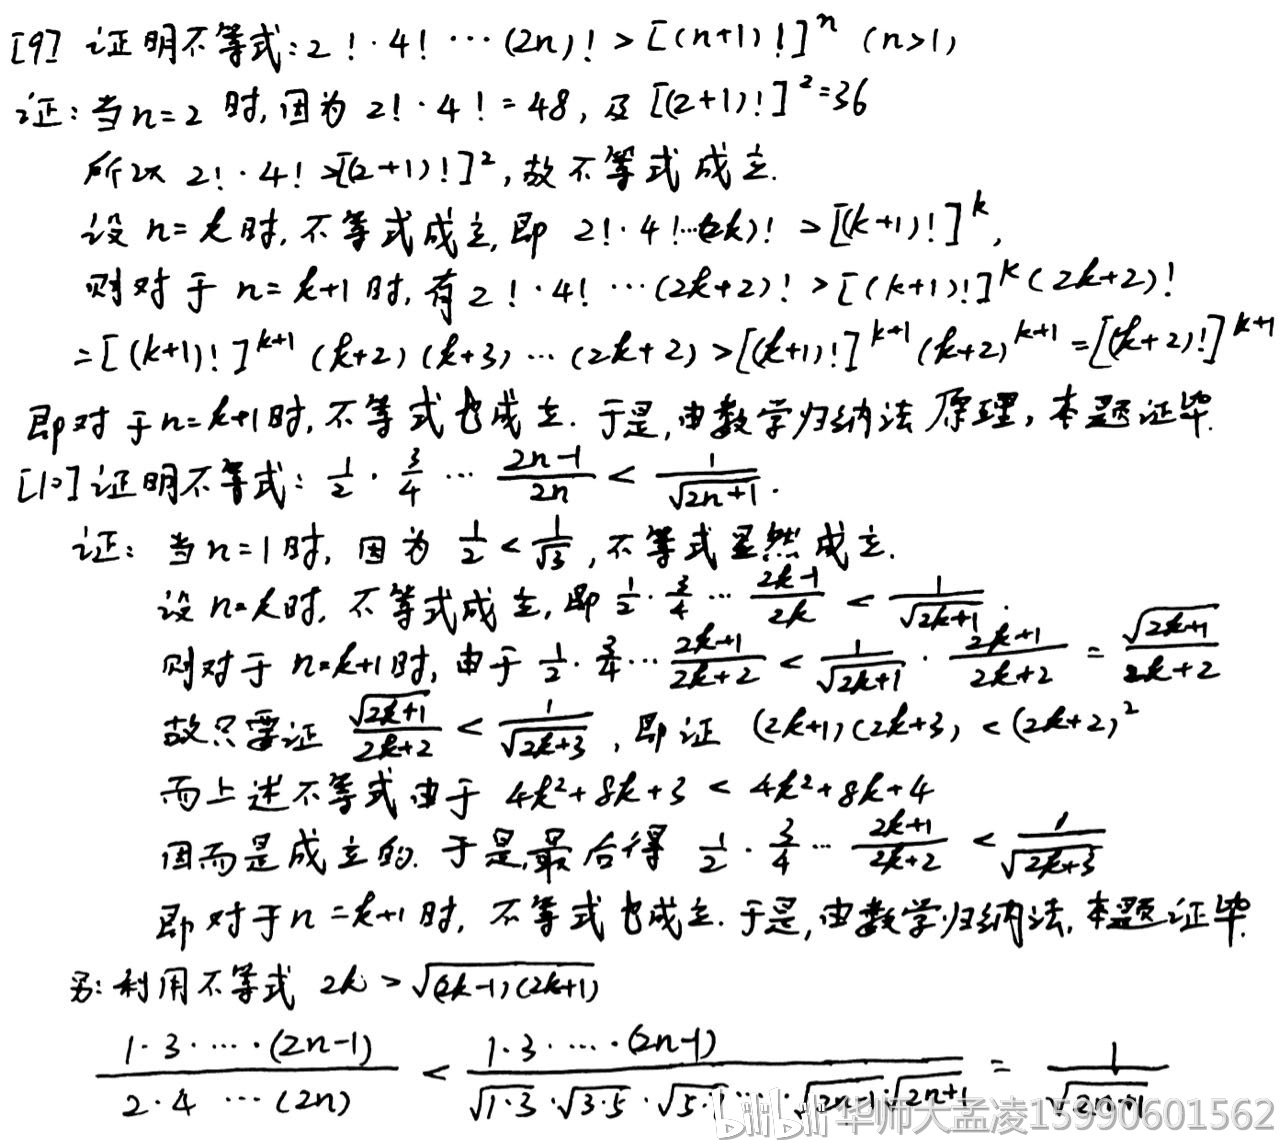 [9] 证明不等式: 2!·4!···(2n)! > [(n+1)!]^n (n>1)
证: 当n=2 时, 因为 2!·4! = 48, 及 [(2+1)!]^2=36
所以 2!·4! >[(2+1)!]^2, 故不等式成立.
设 n=k时, 不等式成立, 即 2!·4!···(2k)! > [(k+1)!]^k,
则对于 n=k+1时, 有 2!·4! ···(2k+2)! > [(k+1)!]^k (2k+2)!
= [(k+1)!]^{k+1} (k+2)(k+3)···(2k+2) > [(k+1)!]^{k+1} (k+2)^{k+1} = [(k+2)!]^{k+1}
即对于n=k+1时, 不等式也成立. 于是, 由数学归纳法原理, 本题证毕.
[10] 证明不等式: 1/2 · 3/4 ··· (2n-1)/(2n) < 1/√(2n+1).
证: 当n=1时, 因为 1/2 < 1/√3, 不等式显然成立.
设 n=k时, 不等式成立, 即 1/2 · 3/4 ··· (2k-1)/(2k) < 1/√(2k+1).
则对于 n=k+1时, 由于 1/2 · 3/4 ··· (2k+1)/(2k+2) < 1/√(2k+1) · (2k+1)/(2k+2) = √(2k+1)/(2k+2)
故只需证 √(2k+1)/(2k+2) < 1/√(2k+3), 即证 (2k+1)(2k+3) < (2k+2)^2
而上述不等式由于 4k²+8k+3 < 4k²+8k+4
因而是成立的. 于是, 最后得 1/2 · 3/4 ··· (2k+1)/(2k+2) < 1/√(2k+3)
即对于n=k+1时, 不等式也成立. 于是, 由数学归纳法, 本题证毕.
另: 利用不等式 2k > √((2k-1)(2k+1))
(1·3·····(2n-1))/(2·4 ···(2n)) < (1·3·····(2n-1))/(√(1·3)·√(3·5)·√(5·7)···√(2n-1)·√(2n+1)) = 1/√(2n+1)
bilibili 华师大孟凌15990601562